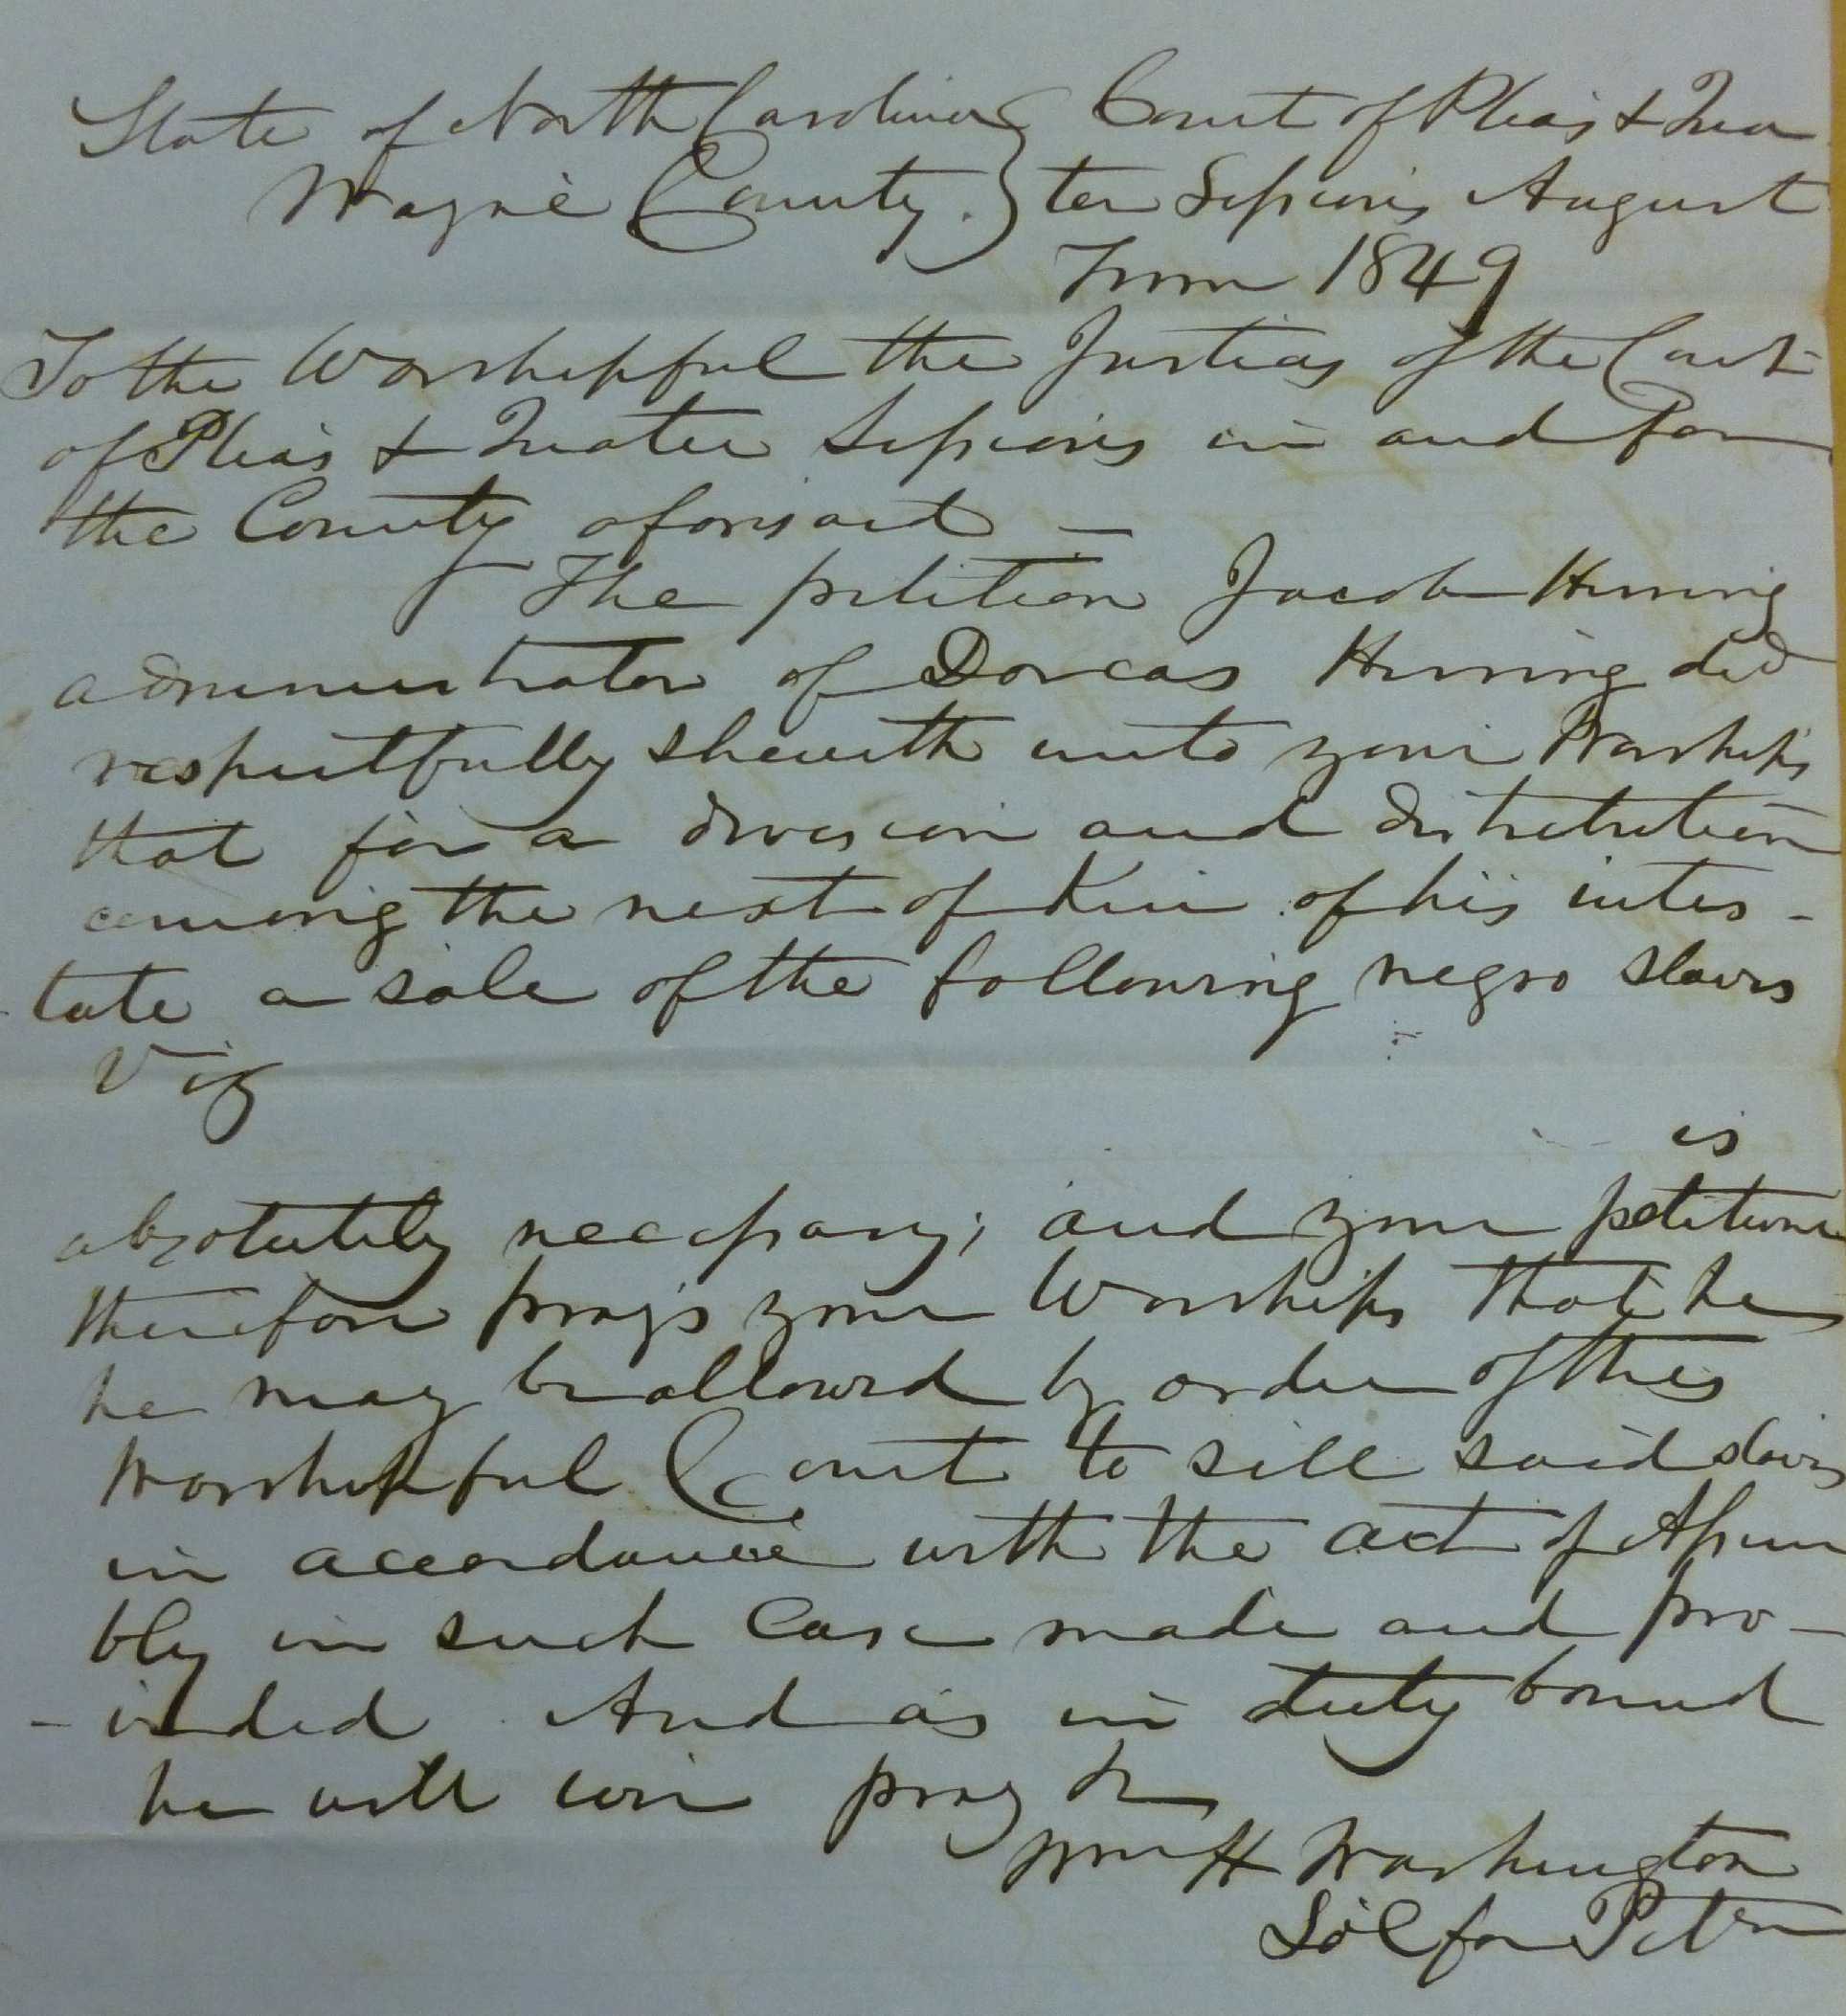 State of North Carolina } Court of Pleas & Quar
Wayne County. } ter Sessions August
Term 1849
To the Worshipful the Justices of the Court
of Pleas & Quater Sessions in and for
the County aforesaid —
The petition Jacob Herring
administrator of Dorcas Herring decd
respectfully sheweth unto your Worships
that for a division and distribution
among the next of Kin of his intes-
tate a sale of the following negro slaves
Viz
is
absolutely necessary; and your petitioner
therefore prays your Worships that he
he may be allowed by order of this
Worshipful Court to sell said slaves
in accordance with the act of Assem
bly in such Case made and pro-
-vided And as in duty bound
he will ever pray &c
Wm H Washington
Sol for Petr